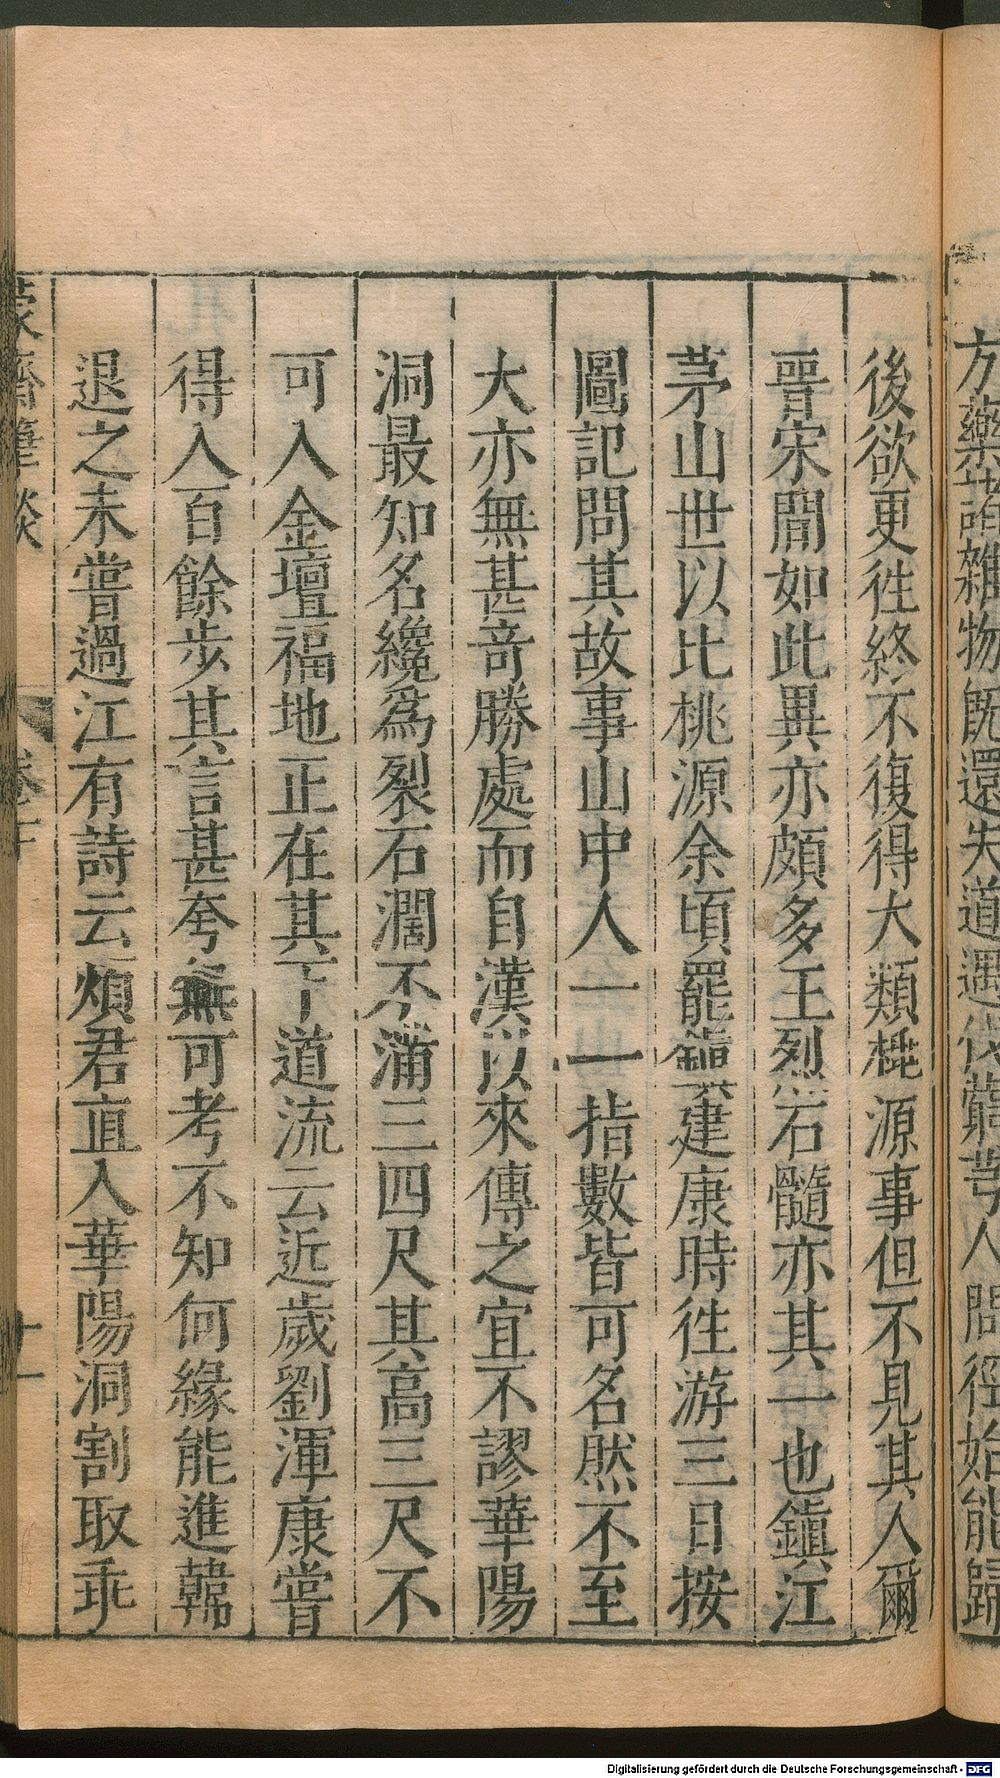 方藥諸雜物既還失道遇伐薪人問徑始能歸
後欲更徃終不復得大類桃源事但不見其人爾
晉宋間如此異亦頗多王烈石髓亦其一也鎭江
茅山世以比桃源余頃罷鎭建康時徃游三日按
圖記問其故事山中人一一指數皆可名然不至
大亦無甚竒勝處而自漢以來傳之宜不謬華陽
洞最知名纔爲裂石濶不滿三四尺其高三尺不
可入金壇福地正在其下道流云近歲劉渾康嘗
得入百餘步其言甚夸無可考不知何緣能進韓
退之未嘗過江有詩云煩君直入華陽洞割取乖
蒙齋筆談
卷下
十一
Digitalisierung gefördert durch die Deutsche Forschungsgemeinschaft - DFG